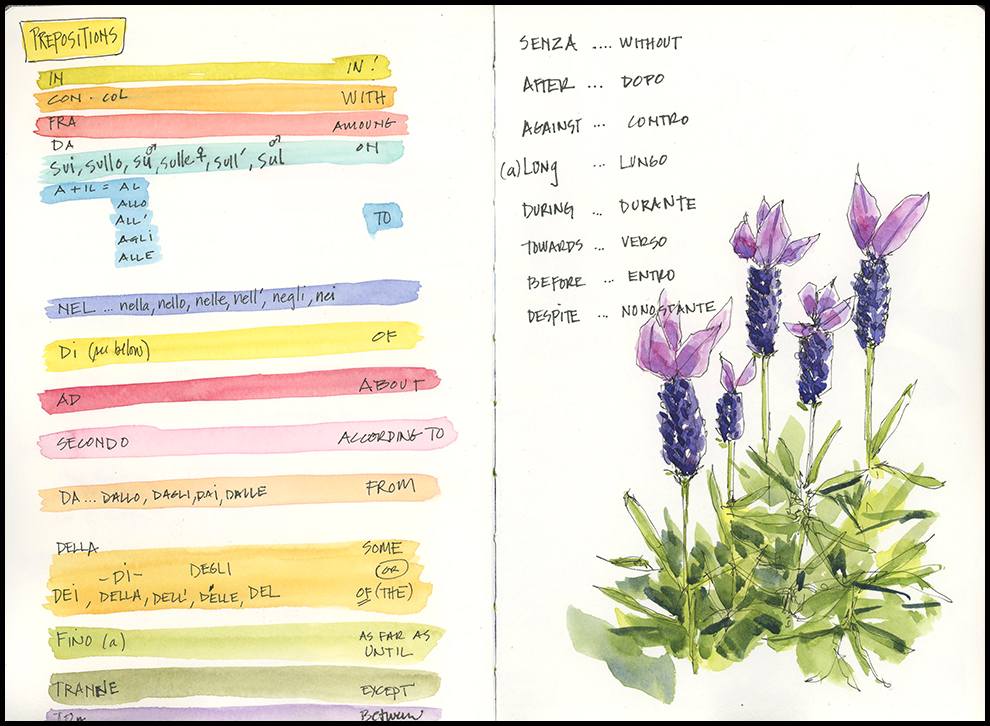 PREPOSITIONS
IN IN!
CON · COL WITH
FRA AMOUNG
DA
SUi, SULLO, SU ♂, SULLE ♀, SULL', SUL ♂ ON
A + IL = AL
ALLO
ALL' TO
AGLI
ALLE
NEL ... nella, nello, nelle, nell', negli, nei
Di (see below) OF
AD ABOUT
SECONDO ACCORDING TO
DA ... DALLO, DAGLI, DAI, DALLE FROM
DELLA SOME
-Di- DEGLI OR
DEI, DELLA, DELL', DELLE, DEL OF (THE)
FINO (a) AS FAR AS
UNTIL
TRANNE EXCEPT
BETWEEN
SENZA .... WITHOUT
AFTER ... DOPO
AGAINST ... CONTRO
(a) LONG ... LUNGO
DURING ... DURANTE
TOWARDS ... VERSO
BEFORE ... ENTRO
DESPITE ... NONOSTANTE